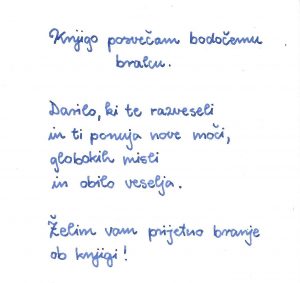 Knjigo posvečam bodočemu
bralcu.
Darilo, ki te razveseli
in ti ponuja nove moči,
globokih misli
in obilo veselja.
Želim vam prijetno branje
ob knjigi!